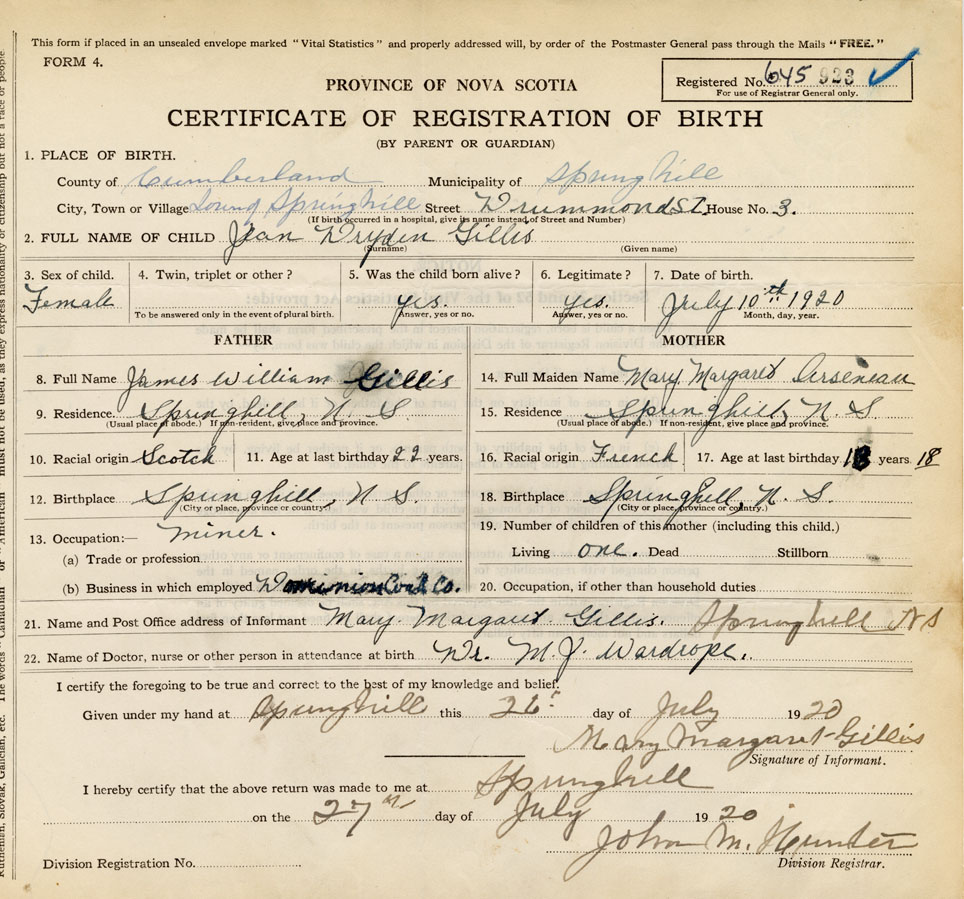 This form if placed in an unsealed envelope marked "Vital Statistics" and properly addressed will, by order of the Postmaster General pass through the Mails "FREE."
FORM 4.
Registered No. 645 923
For use of Registrar General only.
PROVINCE OF NOVA SCOTIA
CERTIFICATE OF REGISTRATION OF BIRTH
(BY PARENT OR GUARDIAN)
1. PLACE OF BIRTH.
County of Cumberland Municipality of Springhill
City, Town or Village Springhill Street Drummond St. House No. 3.
(If birth occurred in a hospital, give its name instead of Street and Number)
2. FULL NAME OF CHILD Jean Dryden Gillis
(Surname) (Given name)
3. Sex of child. 4. Twin, triplet or other? 5. Was the child born alive? 6. Legitimate? 7. Date of birth.
Female yes. yes. July 10th 1920
To be answered only in the event of plural birth. Answer, yes or no. Answer, yes or no. Month, day, year.
FATHER MOTHER
8. Full Name James William Gillis 14. Full Maiden Name Mary Margaret Arseneau
9. Residence. Springhill, N. S 15. Residence Springhill, N. S
(Usual place of abode.) If non-resident, give place and province. (Usual place of abode.) If non-resident, give place and province.
10. Racial origin Scotch 11. Age at last birthday 22 years. 16. Racial origin French 17. Age at last birthday 18 years. 18
12. Birthplace Springhill, N S. 18. Birthplace Springhill, N. S.
(City or place, province or country.) (City or place, province or country.)
13. Occupation:— miner. 19. Number of children of this mother (including this child.)
(a) Trade or profession Living one. Dead Stillborn
(b) Business in which employed Dominion Coal Co. 20. Occupation, if other than household duties
21. Name and Post Office address of Informant Mary Margaret Gillis. Springhill NS
22. Name of Doctor, nurse or other person in attendance at birth Dr. M. J. Wardrope.
I certify the foregoing to be true and correct to the best of my knowledge and belief.
Given under my hand at Springhill this 26 day of July 1920
Mary Margaret Gillis
Signature of Informant.
I hereby certify that the above return was made to me at Springhill
on the 27th day of July 1920
John M. Hunter
Division Registration No. Division Registrar.